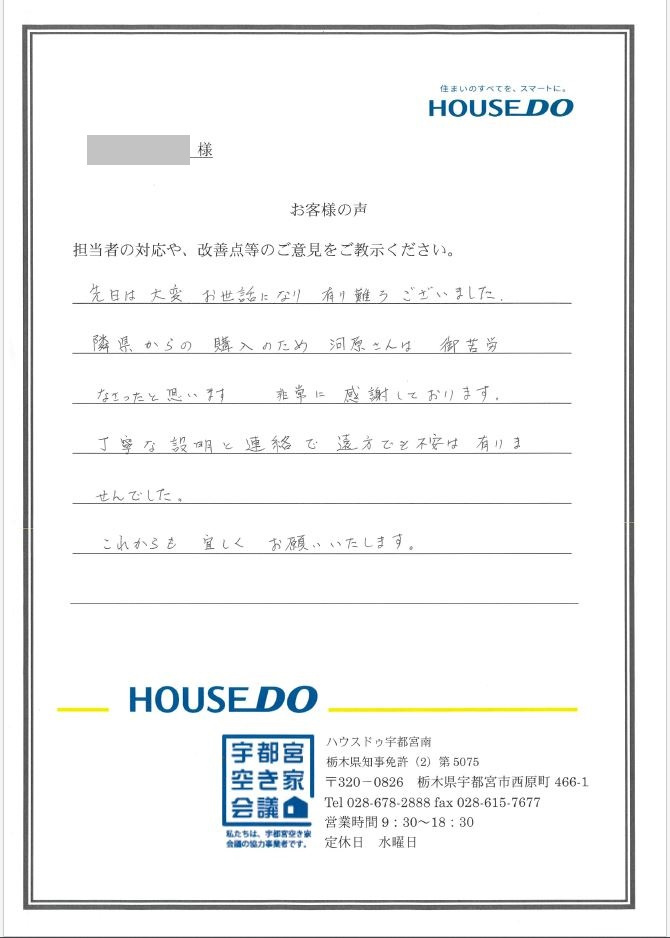 住まいのすべてを、スマートに。
HOUSEDO
様
お客様の声
担当者の対応や、改善点等のご意見をご教示ください。
先日は 大変 お世話になり 有り難うございました.
隣県からの 購入のため 河原さんは 御苦労
なさったと思います 非常に 感謝しております.
丁寧な説明と連絡で 遠方でも不安は 有りま
せんでした。
これからも 宜しく お願いいたします。
HOUSEDO
宇都宮
空き家
会議
私たちは、宇都宮空き家
会議の協力事業者です。
ハウスドゥ宇都宮南
栃木県知事免許（2）第5075
〒320－0826 栃木県宇都宮市西原町 466-1
Tel 028-678-2888 fax 028-615-7677
営業時間 9：30～18：30
定休日 水曜日